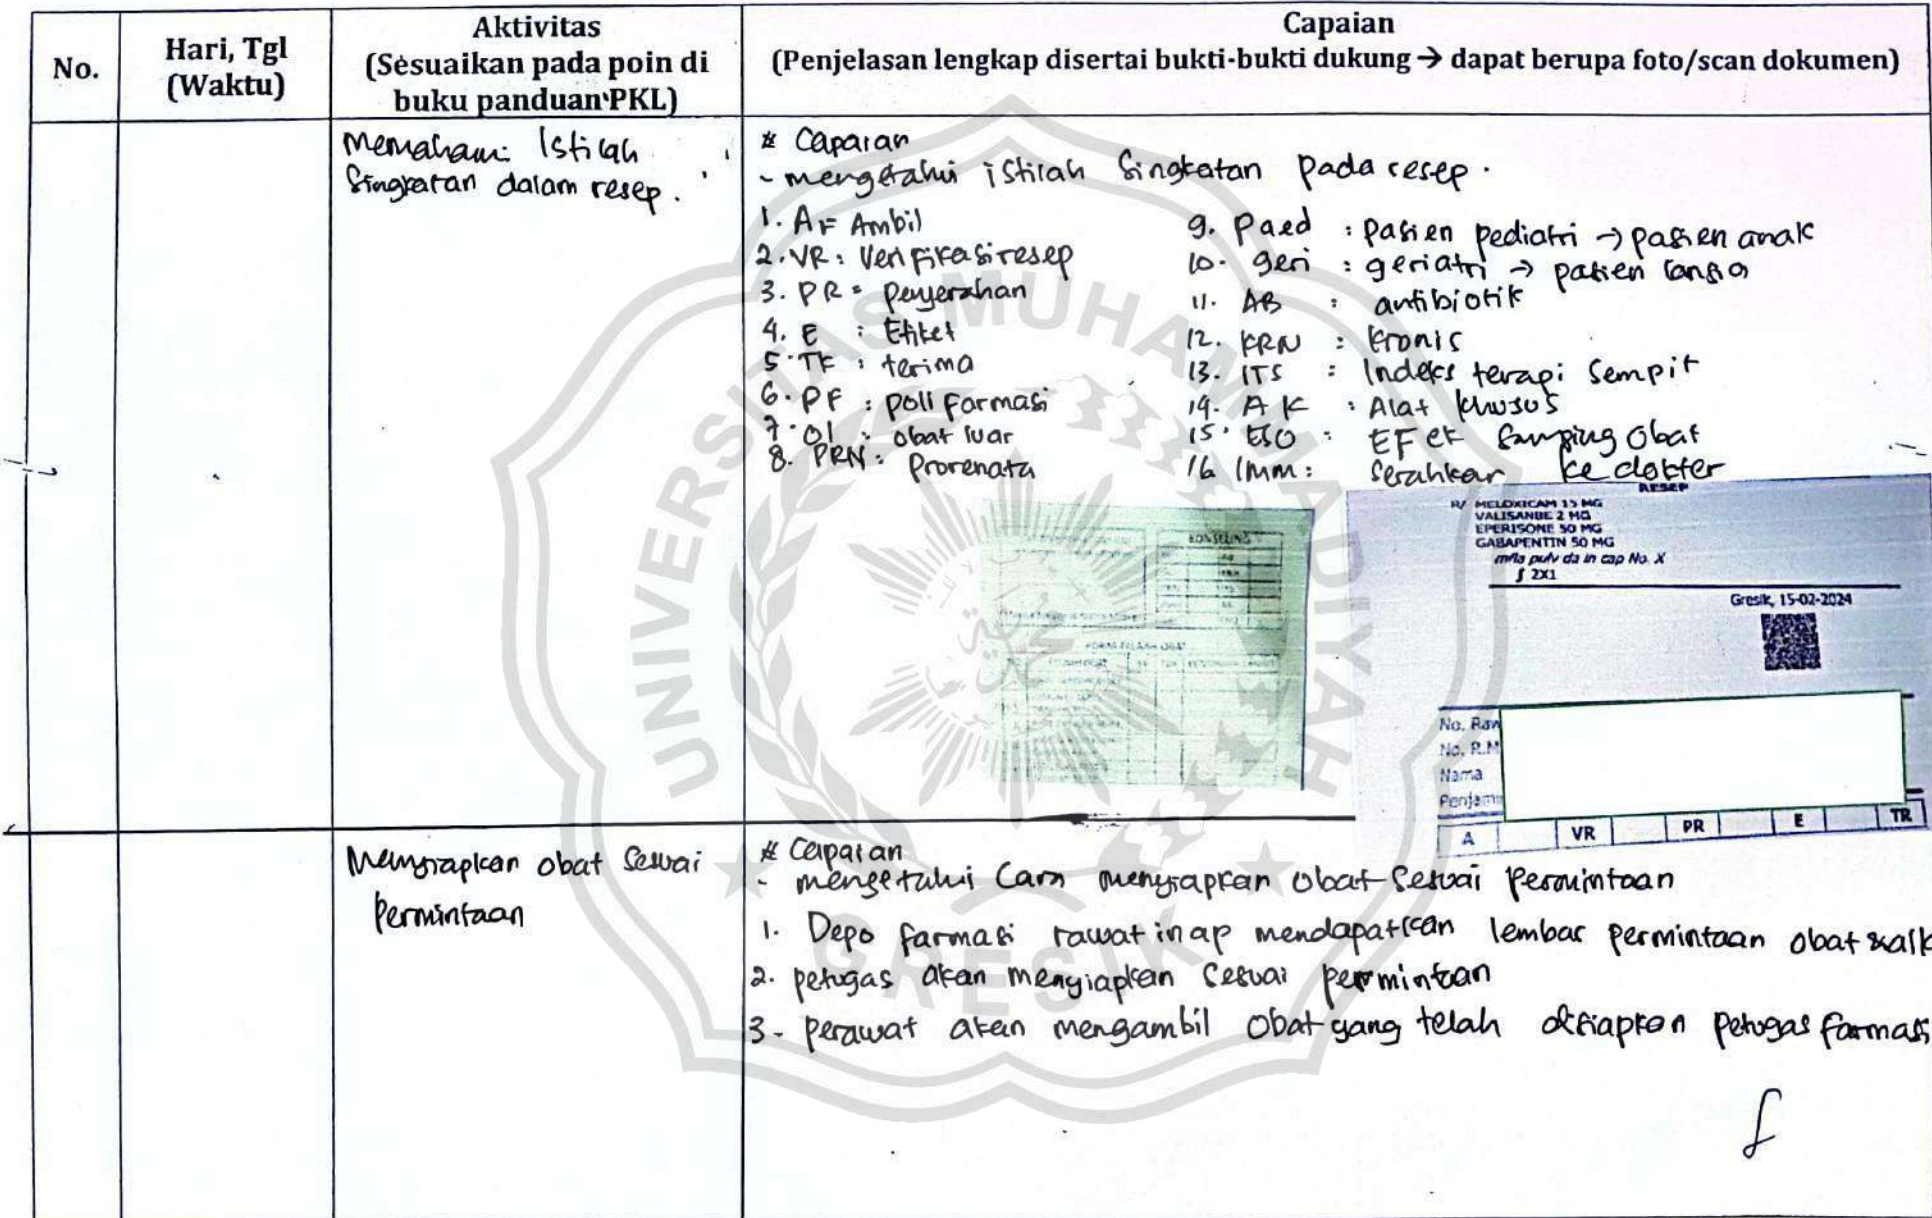 No.
Hari, Tgl
(Waktu)
Aktivitas
(Sesuaikan pada poin di
buku panduan PKL)
Capaian
(Penjelasan lengkap disertai bukti-bukti dukung → dapat berupa foto/scan dokumen)
Memahami Istilah
Singkatan dalam resep.
# Capaian
- mengetahui istilah Singkatan pada resep.
1. A = Ambil
2. VR : Verifikasi resep
3. PR = penyerahan
4. E : Etiket
5. TK : terima
6. PF : poli farmasi
7. Ol : obat luar
8. PRN : Prorenata
9. Paed : pasien pediatri → pasien anak
10. geri : geriatri → pasien lansia
11. AB : antibiotik
12. KRN : kronis
13. ITS : Indeks terapi Sempit
14. AK : Alat khusus
15. ESO : EFek Samping Obat
16 Imm : Serahkan ke dokter
KONSELING
FORM TELAAH OBAT
RESEP
R/ MELOXICAM 15 MG
VALISANBE 2 MG
EPERISONE 50 MG
GABAPENTIN 50 MG
mfla pulv da in cap No. X
ʃ 2X1
Gresik, 15-02-2024
No. Raw
No. R.M
Nama
Penjamin
A VR PR E TR
Menyiapkan obat Sesuai
Permintaan
# Capaian
- mengetahui Cara menyiapkan obat Sesuai Permintaan
1. Depo farmasi rawat inap mendapatkan lembar permintaan obat
2. petugas akan menyiapkan Sesuai permintaan
3 - perawat akan mengambil Obat yang telah disiapkan petugas farmasi
UNIVERSITAS MUHAMMADIYAH
GRESIK